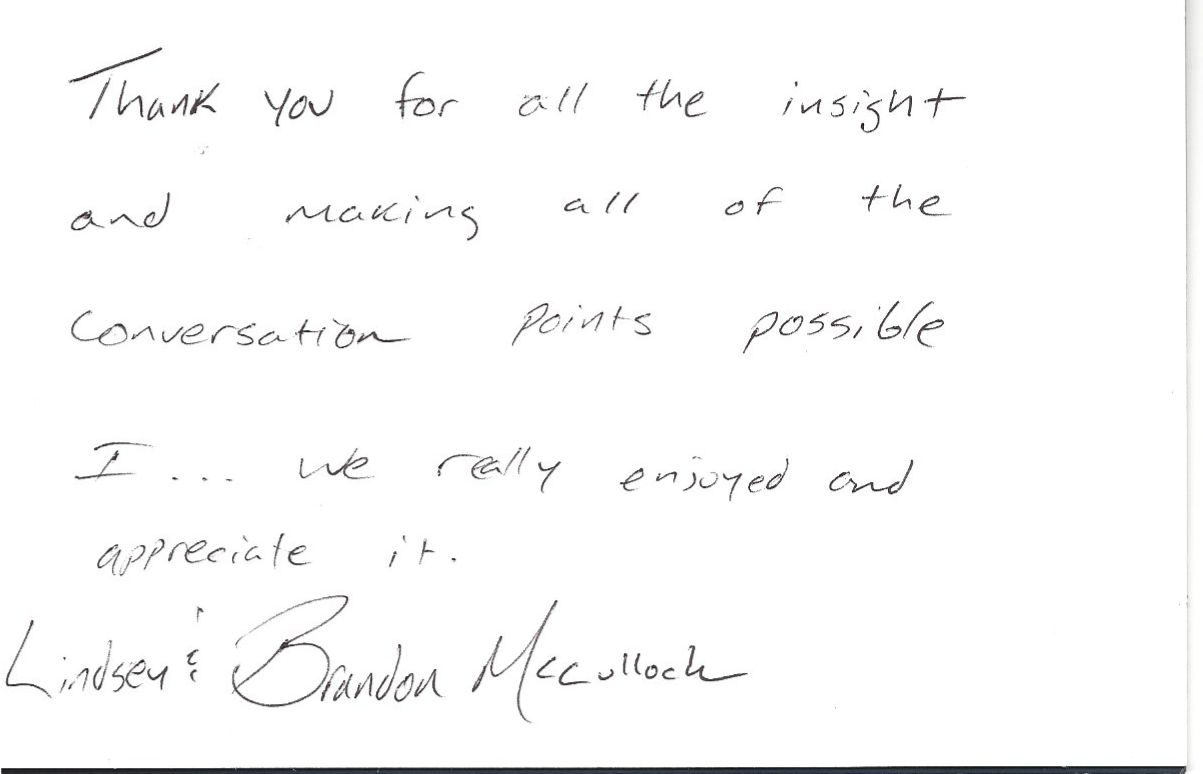 Thank you for all the insight
and making all of the
conversation points possible
I... we really enjoyed and
appreciate it.
Lindsey & Brandon McCulloch